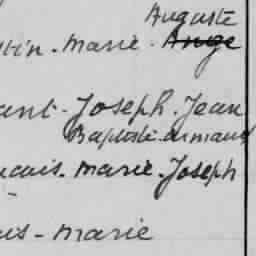 Auguste
tin - Marie - Ange
ant - Joseph - Jean
Baptiste Armand
nçois - Marie - Joseph
is - Marie